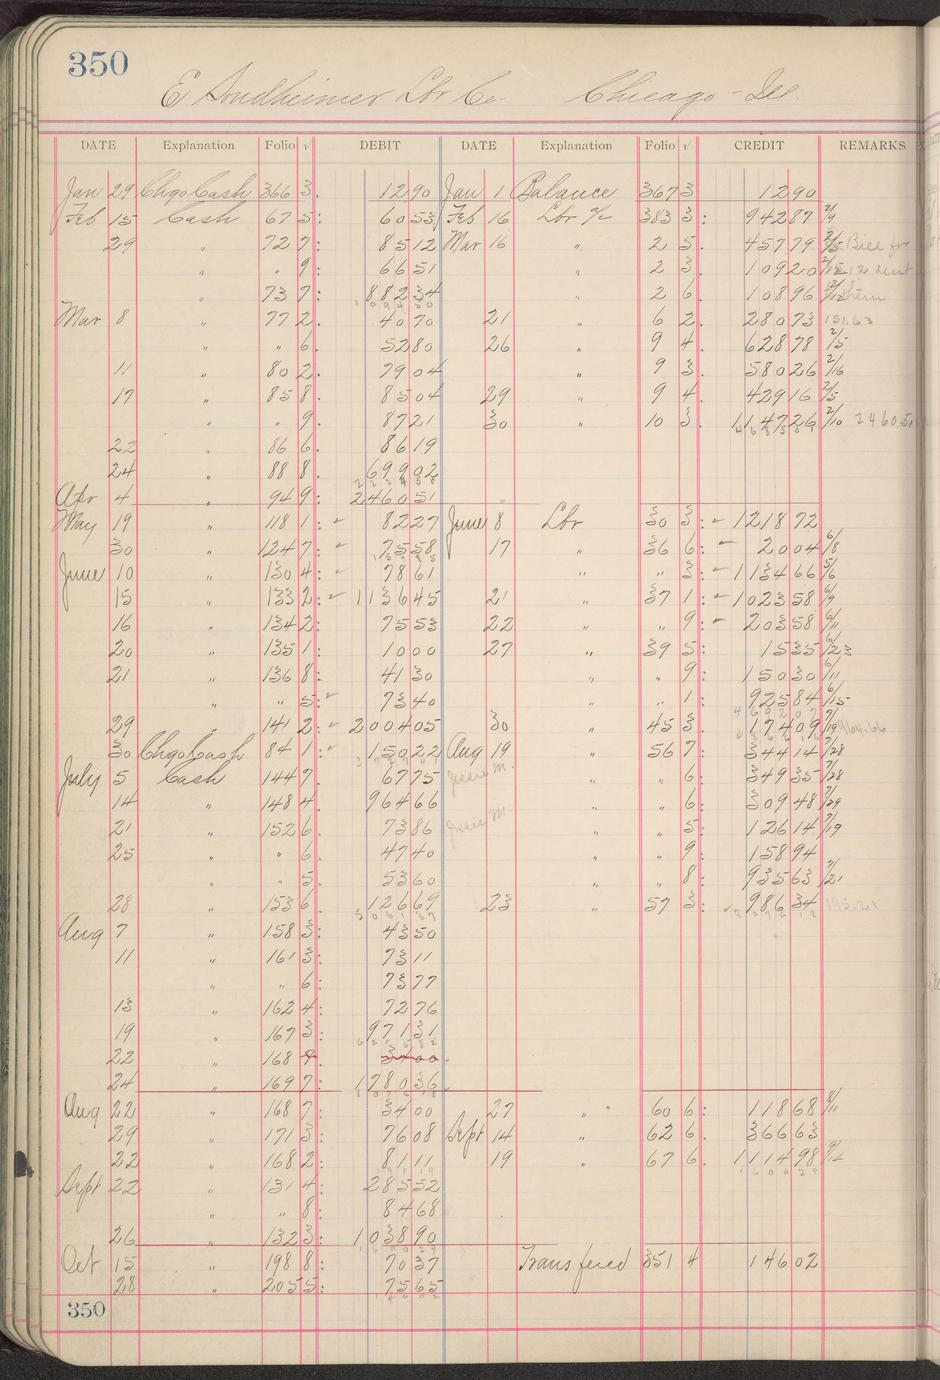 350
E Sondheimer Lbr Co. Chicago - Ill.
DATE Explanation Folio √ DEBIT DATE Explanation Folio √ CREDIT REMARKS
Jan 29 ChgoCash 366 3. 12 90 Jan 1 Balance 367 3 12 90
Feb 15 Cash 67 5: 60 53 Feb 16 Lbr a/c 383 3: 942 87 2/9
29 " 72 7: 85 12 Mar 16 " 2 5. 457 79 2/5 Bill for
" " 9: 66 51 " 2 3. 109 20 2/15
" 73 7: 882 34 " 2 6. 108 96
Mar 8 " 77 2. 40 70 21 " 6 2. 280 73 151.63
" " 6. 52 80 26 " 9 4. 628 78 2/5
11 " 80 2. 79 04 " 9 3. 580 26 2/16
17 " 85 8. 85 04 29 " 9 4. 429 16 2/5
" " 9. 87 21 30 " 10 3. 1147 26 2/10 2460.51
22 " 86 6. 86 19
24 " 88 8. 699 02
Apr 4 " 94 9: 2460 51
May 19 " 118 1: 82 27 June 8 Lbr 30 3: 1218 72
30 " 124 7: 75 58 17 " 36 6: 20 04 6/8
June 10 " 130 4: 78 61 " " 3: 1134 66 5/6
15 " 133 2: 1136 45 21 " 37 1: 1023 58 6/9
16 " 134 2: 75 53 22 " " 9: 203 58 6/11
20 " 135 1: 10 00 27 " 39 5: 15 35 6/23
21 " 136 8: 41 30 " " 9: 150 30 6/11
" " 5: 73 40 " " 1: 925 84 6/15
29 " 141 2: 2004 05 30 " 45 3. 174 09 964.66
30 ChgoCash 84 1: 150 22 Aug 19 " 56 7: 344 14 7/28
July 5 Cash 144 7: 67 75 Jessie M. " " 6: 349 35 7/28
14 " 148 4: 964 66 " " 6: 309 48 7/29
21 " 152 6. 73 86 Jessie M. " " 5: 126 14 7/19
25 " " 6. 47 40 " " 9: 158 94
" " 5. 53 60 " " 8: 935 63 7/21
28 " 153 6. 126 69 23 " 57 3: 986 34 195.21
Aug 7 " 158 3: 43 50
11 " 161 3: 73 11
" " 6: 73 77
13 " 162 4: 72 76
19 " 167 3: 971 31
22 " 168 9. 34 00
24 " 169 7: 1780 36
Aug 22 " 168 7: 34 00 27 " " 60 6: 118 68 8/11
29 " 171 3: 76 08 Sept 14 " 62 6. 366 63
22 " 168 2: 81 11 19 " 67 6. 1114 98
Sept 22 " 131 4: 285 52
" " 8: 84 68
26 " 132 3: 1038 90
Oct 15 " 198 8: 70 37 Transfered 351 4 146 02
28 " 205 5: 75 65
350